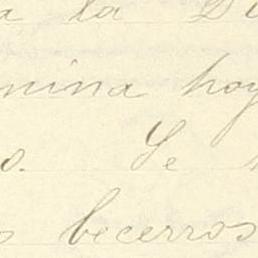 a la
nina hoy
o. Se
becerros